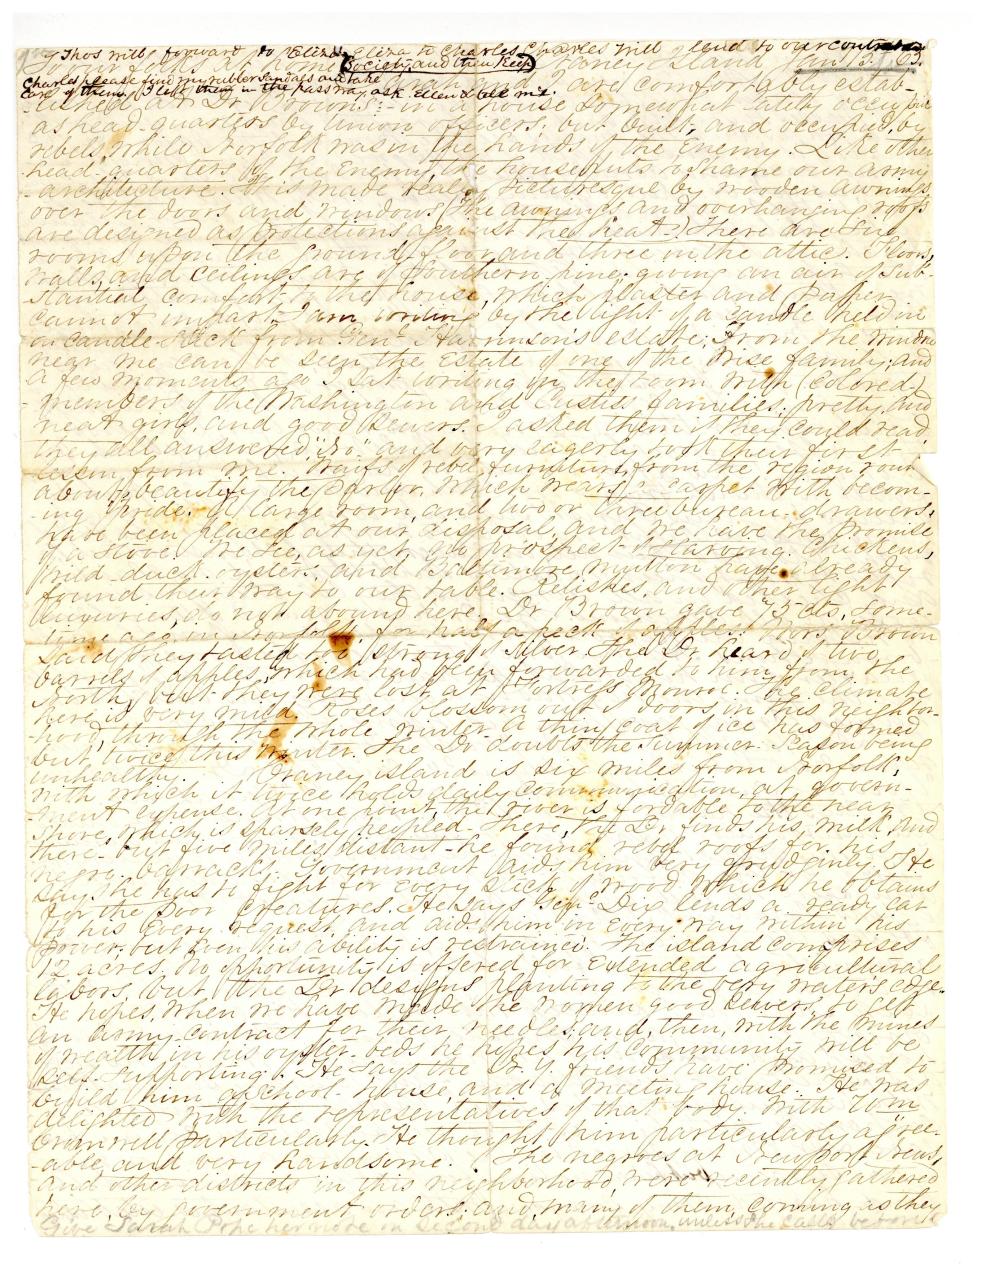 Thos will forward to Eliza, Eliza to Charles, Charles will lend to our
Society, and then keep Craney Island Jan 13. 63.
Charles please find my rubber sandals and take
care of them. I left them in the passway, ask Ellen & tell me.
We are comfortably estab-
lished at Dr Brown's:- in a house somewhat lately occupied
as head-quarters by Union officers, but built, and occupied, by
rebels, while Norfolk was in the hands of the Enemy. Like other
head-quarters of the Enemy, the house puts to shame our army
architecture. It is made really picturesque by wooden awnings
over the doors and windows (The awnings and overhanging roofs
are designed as protections against the heat.) There are five
rooms upon the ground-floor, and three in the attic. Floors,
walls, and ceilings are of Southern pine; giving an air of sub-
stantial comfort, to the house, which plaster and paper
cannot impart. I am writing by the light of a candle held in
a candle-stick from Genl Harrinson's estate; From the window
near me can be seen the Estate of one of the Wise family; and
a few moments ago I sat writing in the room with (colored)
members of the Washington and Custiss families; pretty, and
neat girls, and good sewers. I asked them if they could read
they all answered, "No" and very eagerly took their first
lesson from me. Waifs of rebel furniture, from the region round
about, beautify the parlor, which wears a carpet with becom-
ing pride. A large room, and two or three bureau-drawers,
have been placed at our disposal, and we have the promise
of a stove. We see, as yet, no prospect of starving. Chickens,
wild-duck, oysters, and Baltimore mutton have already
found their way to our table. Relishes, and other light
luxuries, do not abound here. Dr Brown gave 75 cts, some-
time ago, in Norfolk for half a peck of apples. Mrs. Brown
said they tasted too strong of silver. The Dr heard of two
barrels of apples, which had been forwarded to him from the
North, but they were lost at Fortress Monroe. The climate
here is very mild. Roses blossom out of doors in this neighbor-
hood, through the whole winter. A thin coat of ice has formed
but twice this winter. The Dr doubts the summer season being
unhealthy. Craney island is six miles from Norfolk;
with which it twice holds daily communication, at govern-
ment expense. At one point, the river is fordable to the near
shore, which is sparsely peopled. There, the Dr finds his milk, and
there- but five miles distant- he found rebel roofs for his
negro barracks. Government aids him very grudgingly. He
says he has to fight for every stick of wood which he obtains
for the poor creatures. He says Genl Dix lends a ready ear
to his every request, and aids him in every way within his
power, but even his ability is restrained. The island comprises
12 acres. No opportunity is offered for extended agricultural
labors, but the Dr designs planting to the very waters edge.
He hopes, when we have made the women good sewers, to get
an Army contract for their needles, and, then, with the mines
of wealth in his oyster-beds he hopes his community will be
self-supporting. He says the N. Y. friends have promised to
build him a school-house, and a meeting house. He was
delighted with the representatives of that body. With Wm
Cromwell, particularly. He thought him particularly agree-
able, and very handsome. The negroes at Newport News,
and other districts in this neighborhood, were recently gathered
here, by government orders; and many of them, coming as they
Give Sarah Pope hers more on second day afternoon, unless she calls before